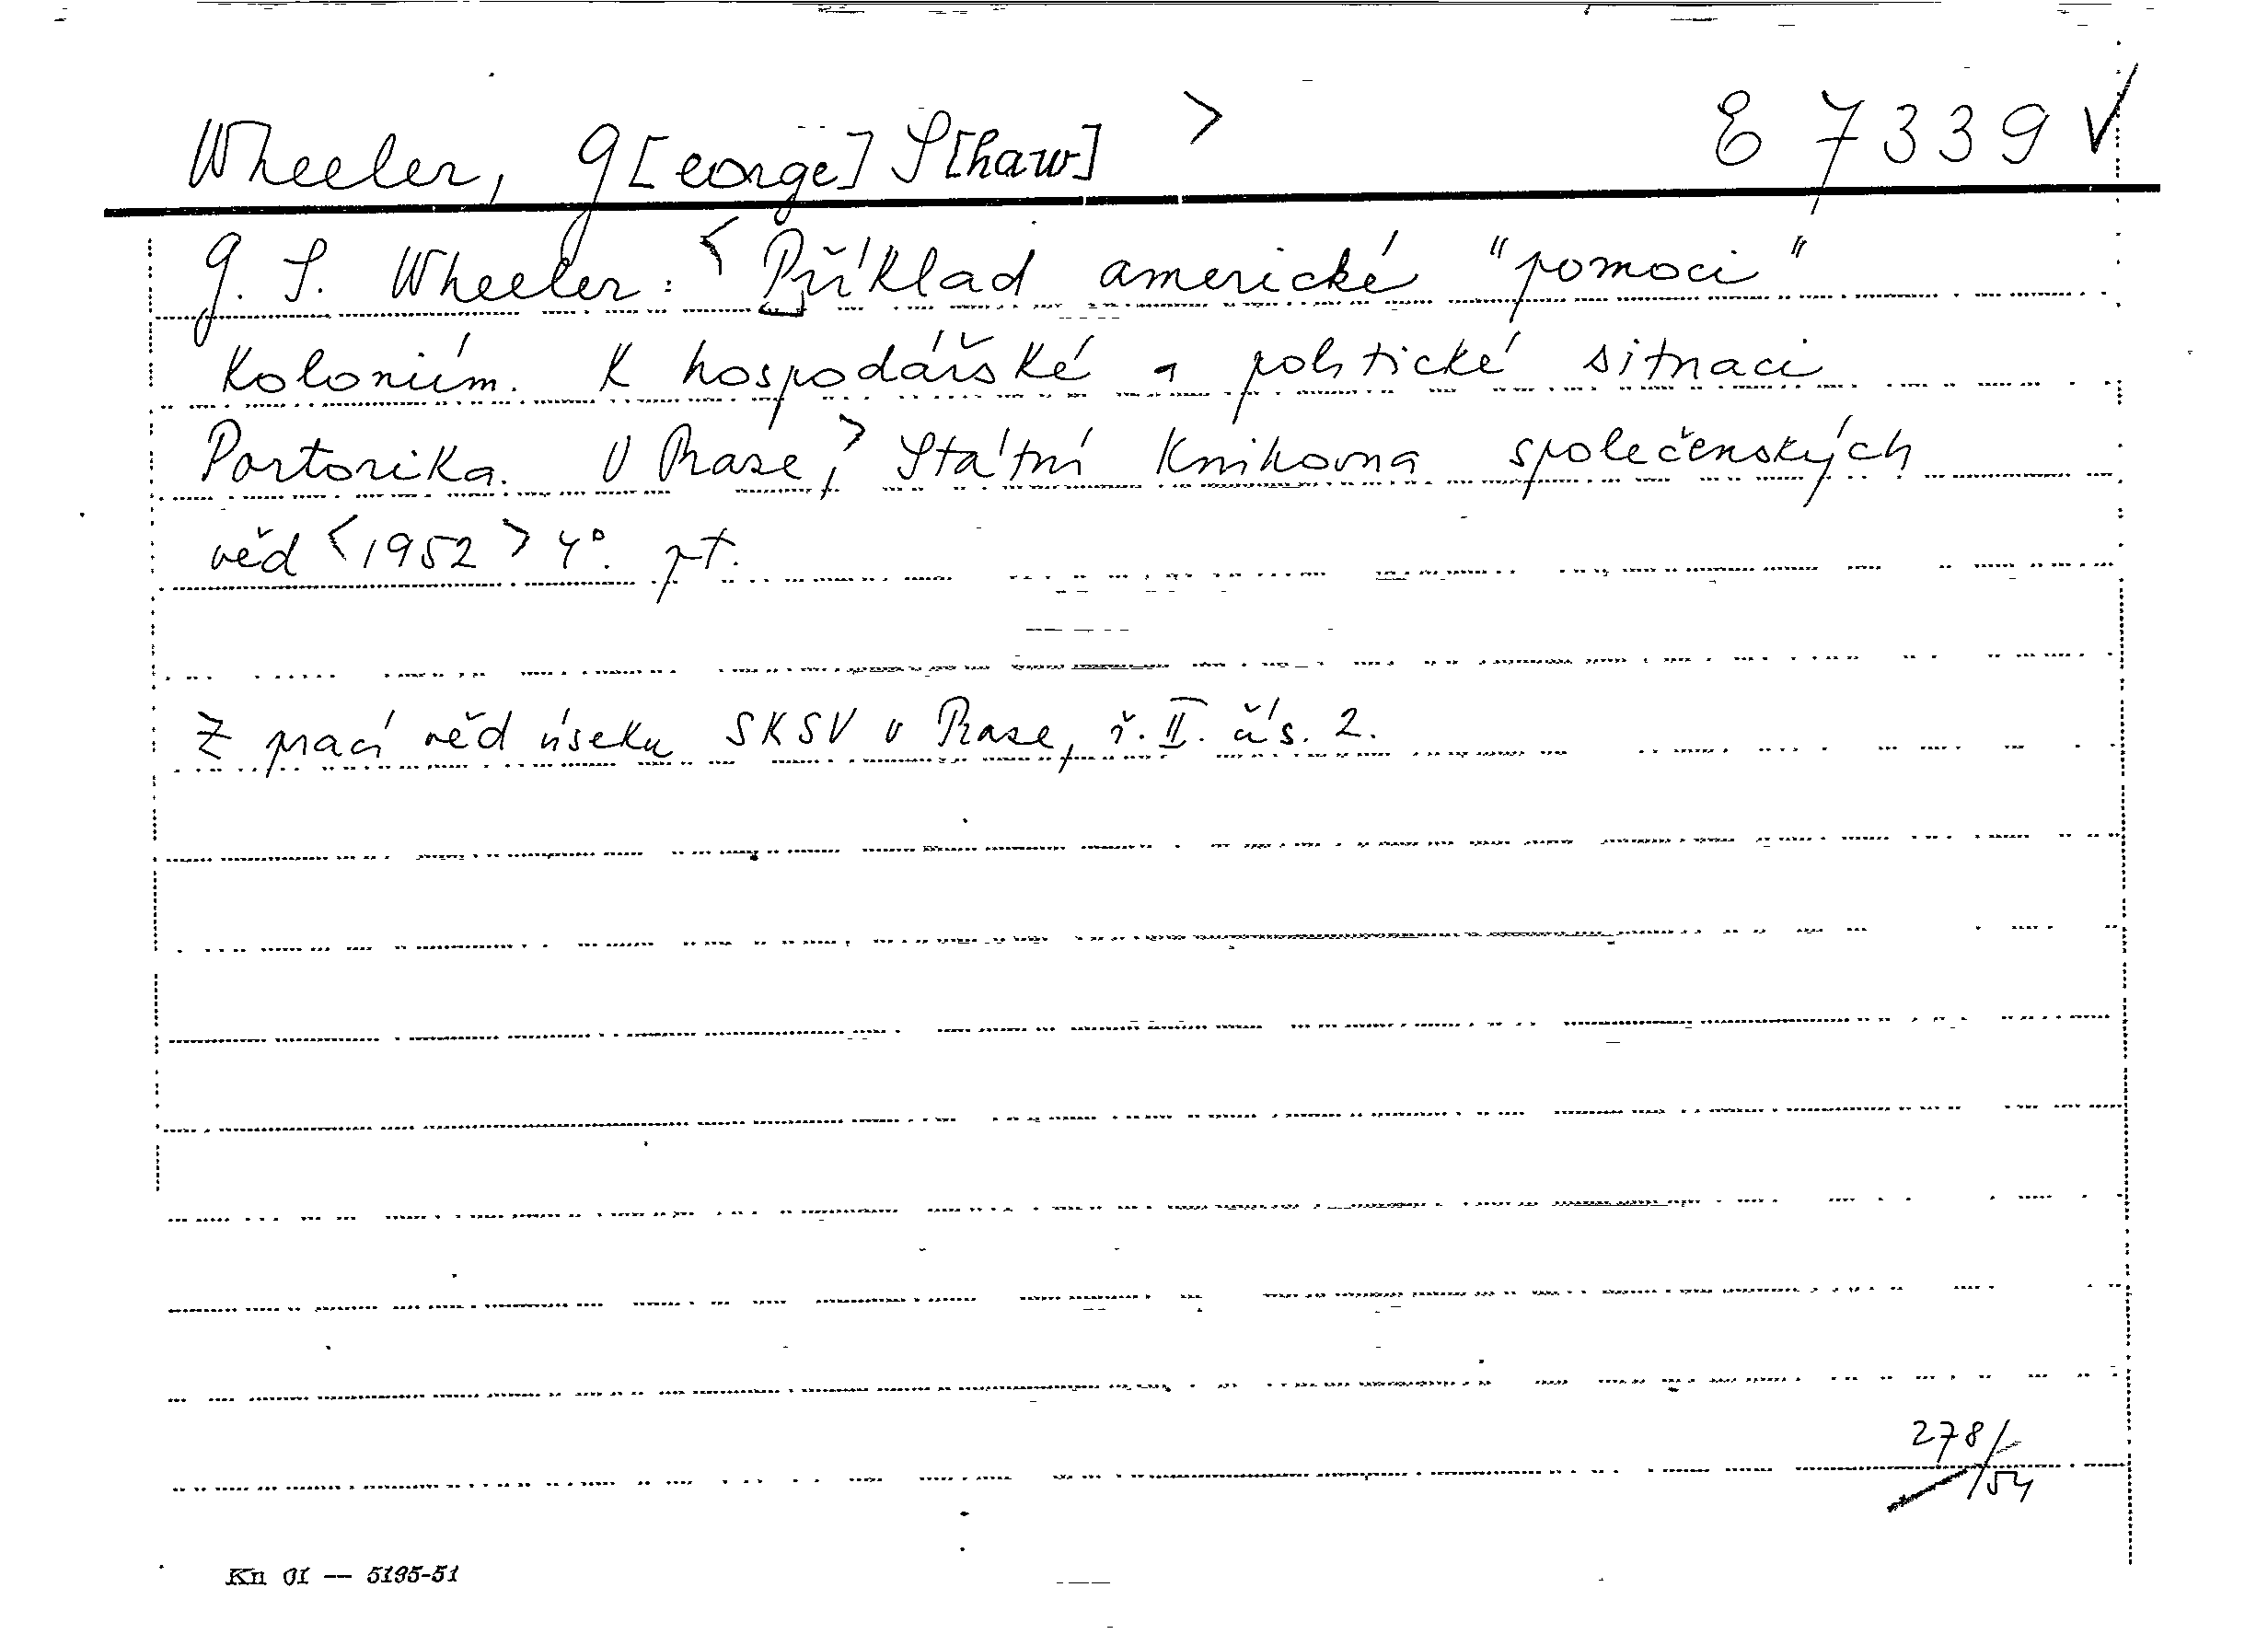 Wheeler, G[eorge] S[haw] > E 7339 √
G. S. Wheeler: < Příklad americké "pomoci"
koloniím. K hospodářské a politické situaci
Portorika. V Praze, > Státní knihovna společenských
věd <1952> 4°. pt.
Z prací věd úseku SKSV v Praze, ř. II. čís. 2.
278/54
Kn 01 — 5195-51